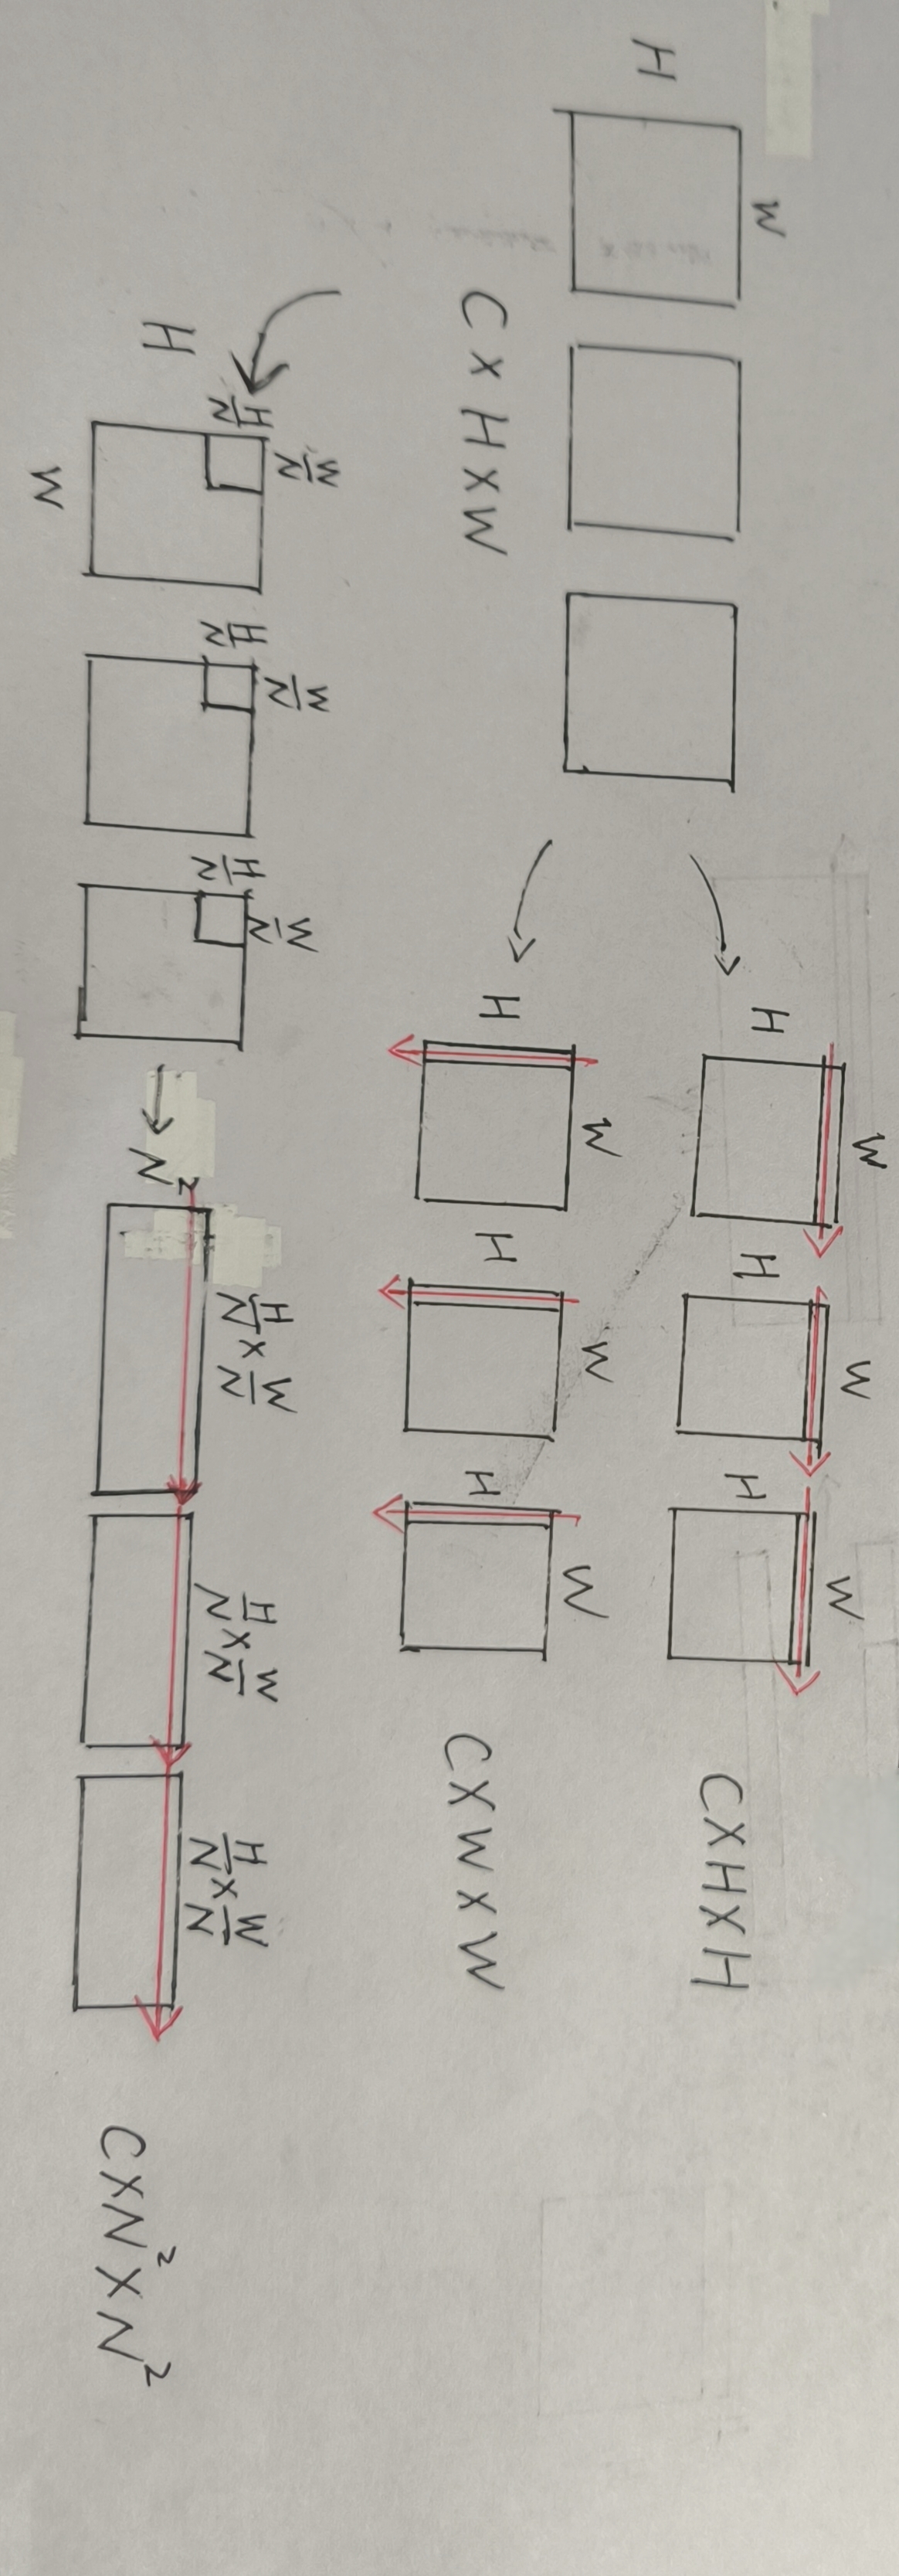 W
H
C X H X W
W W W
H H H
C X H X H
W W W
H H H
C X W X W
W/N W/N W/N
H/N H/N H/N
H
W
H/N x W/N H/N x W/N H/N x W/N
N²
C X N² X N²